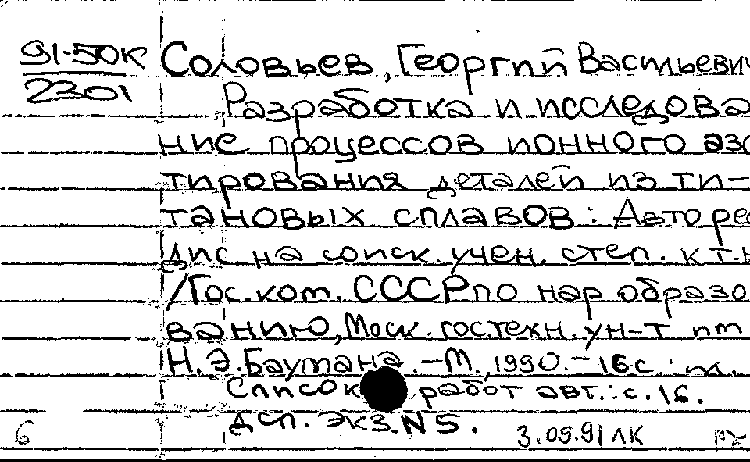 91-50К Соловьев, Георгий Васильевич
2301 Разработка и исследова
ние процессов ионного азо
тирования деталей из ти-
тановых сплавов: Авторе
дис на соиск. учен. степ. к.т.н
/Гос.ком. СССР по нар образо
ванию, Моск. гос техн. ун-т им
Н.Э.Баумана. -М., 1990. -16с.: ил.
Список работ авт.: с.16.
Дсп. Экз.N5.
6 3.09.91 ЛК